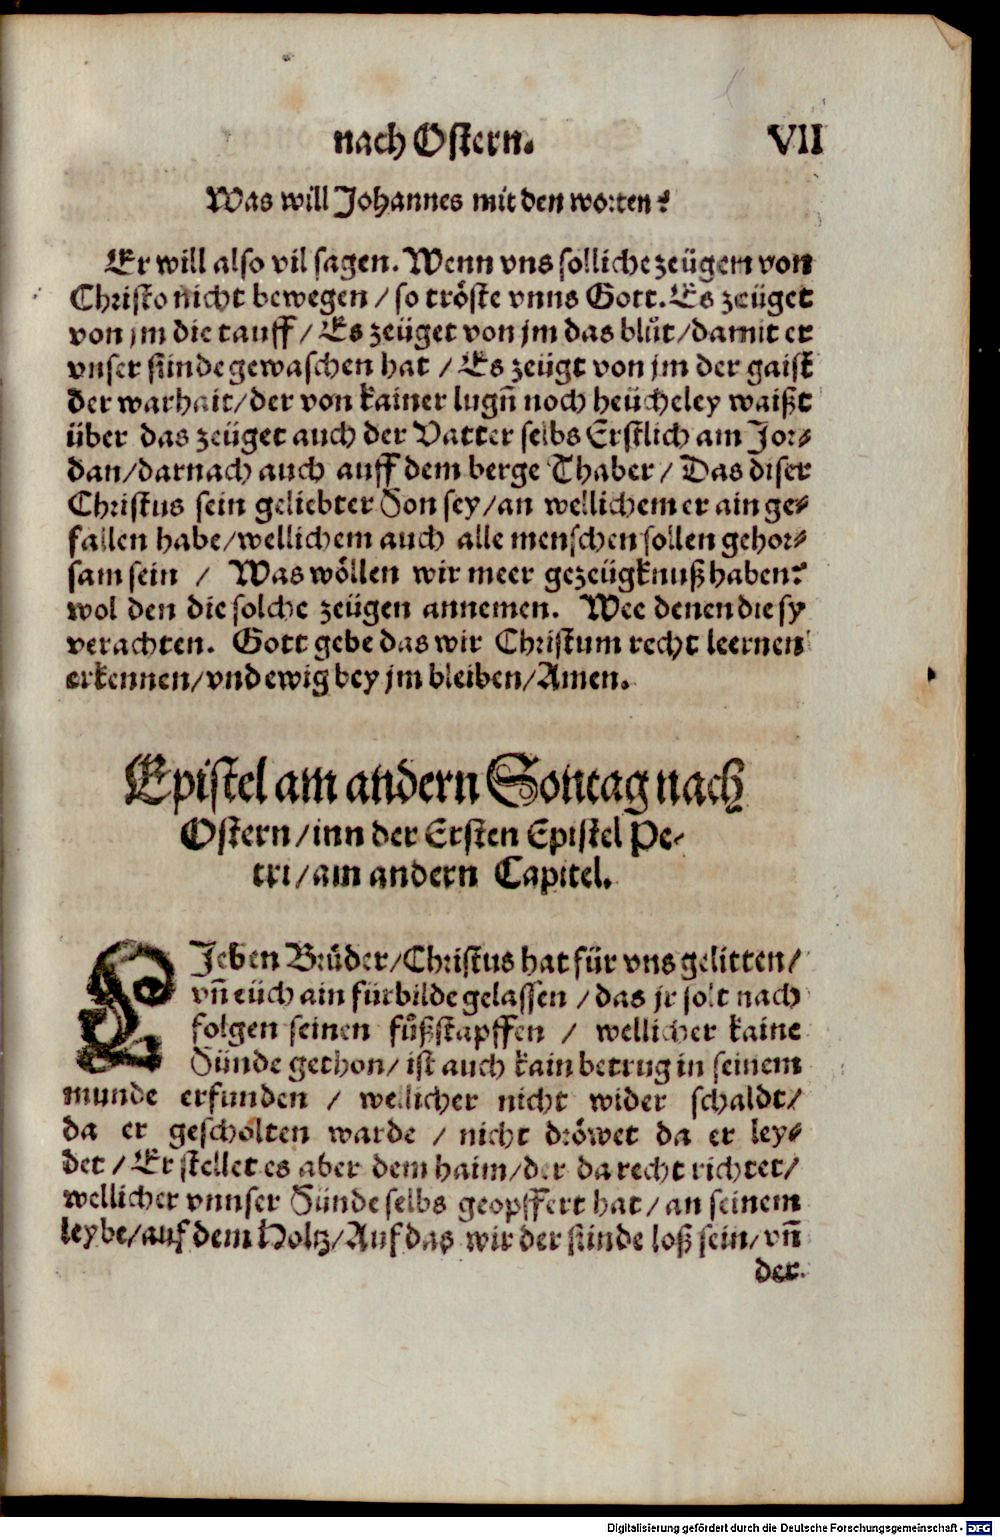 nach Ostern. VII
Was will Johannes mit den worten?
Er will also vil sagen. Wenn vns solliche zeügen von
Christo nicht bewegen / so tröste vnns Gott. Es zeüget
von jm die tauff / Es zeüget von jm das blůt / damit er
vnser sünde gewaschen hat / Es zeügt von jm der gaist
der warhait / der von kainer lugñ noch heücheley waißt
über das zeüget auch der Vatter selbs Erstlich am Jor⸗
dan / darnach auch auff dem berge Thaber / Das diser
Christus sein geliebter Son sey / an wellichem er ain ge⸗
fallen habe / wellichem auch alle menschen sollen gehor⸗
sam sein / Was wöllen wir meer gezeügknuß haben?
wol den die solche zeügen annemen. Wee denen die sy
verachten. Gott gebe das wir Christum recht leernen
erkennen / vnd ewig bey jm bleiben / Amen.
Epistel am andern Sontag nach
Ostern / inn der Ersten Epistel Pe⸗
tri / am andern Capitel.
LJeben Brůder / Christus hat für vns gelitten /
vñ eüch ain fürbilde gelassen / das jr solt nach
folgen seinen fůßstapffen / wellicher kaine
Sünde gethon / ist auch kain betrug in seinem
munde erfunden / wellicher nicht wider schaldt /
da er gescholten warde / nicht dröwet da er ley⸗
det / Er stellet es aber dem haim / der da recht richtet /
wellicher vnnser Sünde selbs geopffert hat / an seinem
leybe / auf dem Holtz / Auf das wir der sünde loß sein / vñ
der
Digitalisierung gefördert durch die Deutsche Forschungsgemeinschaft - DFG